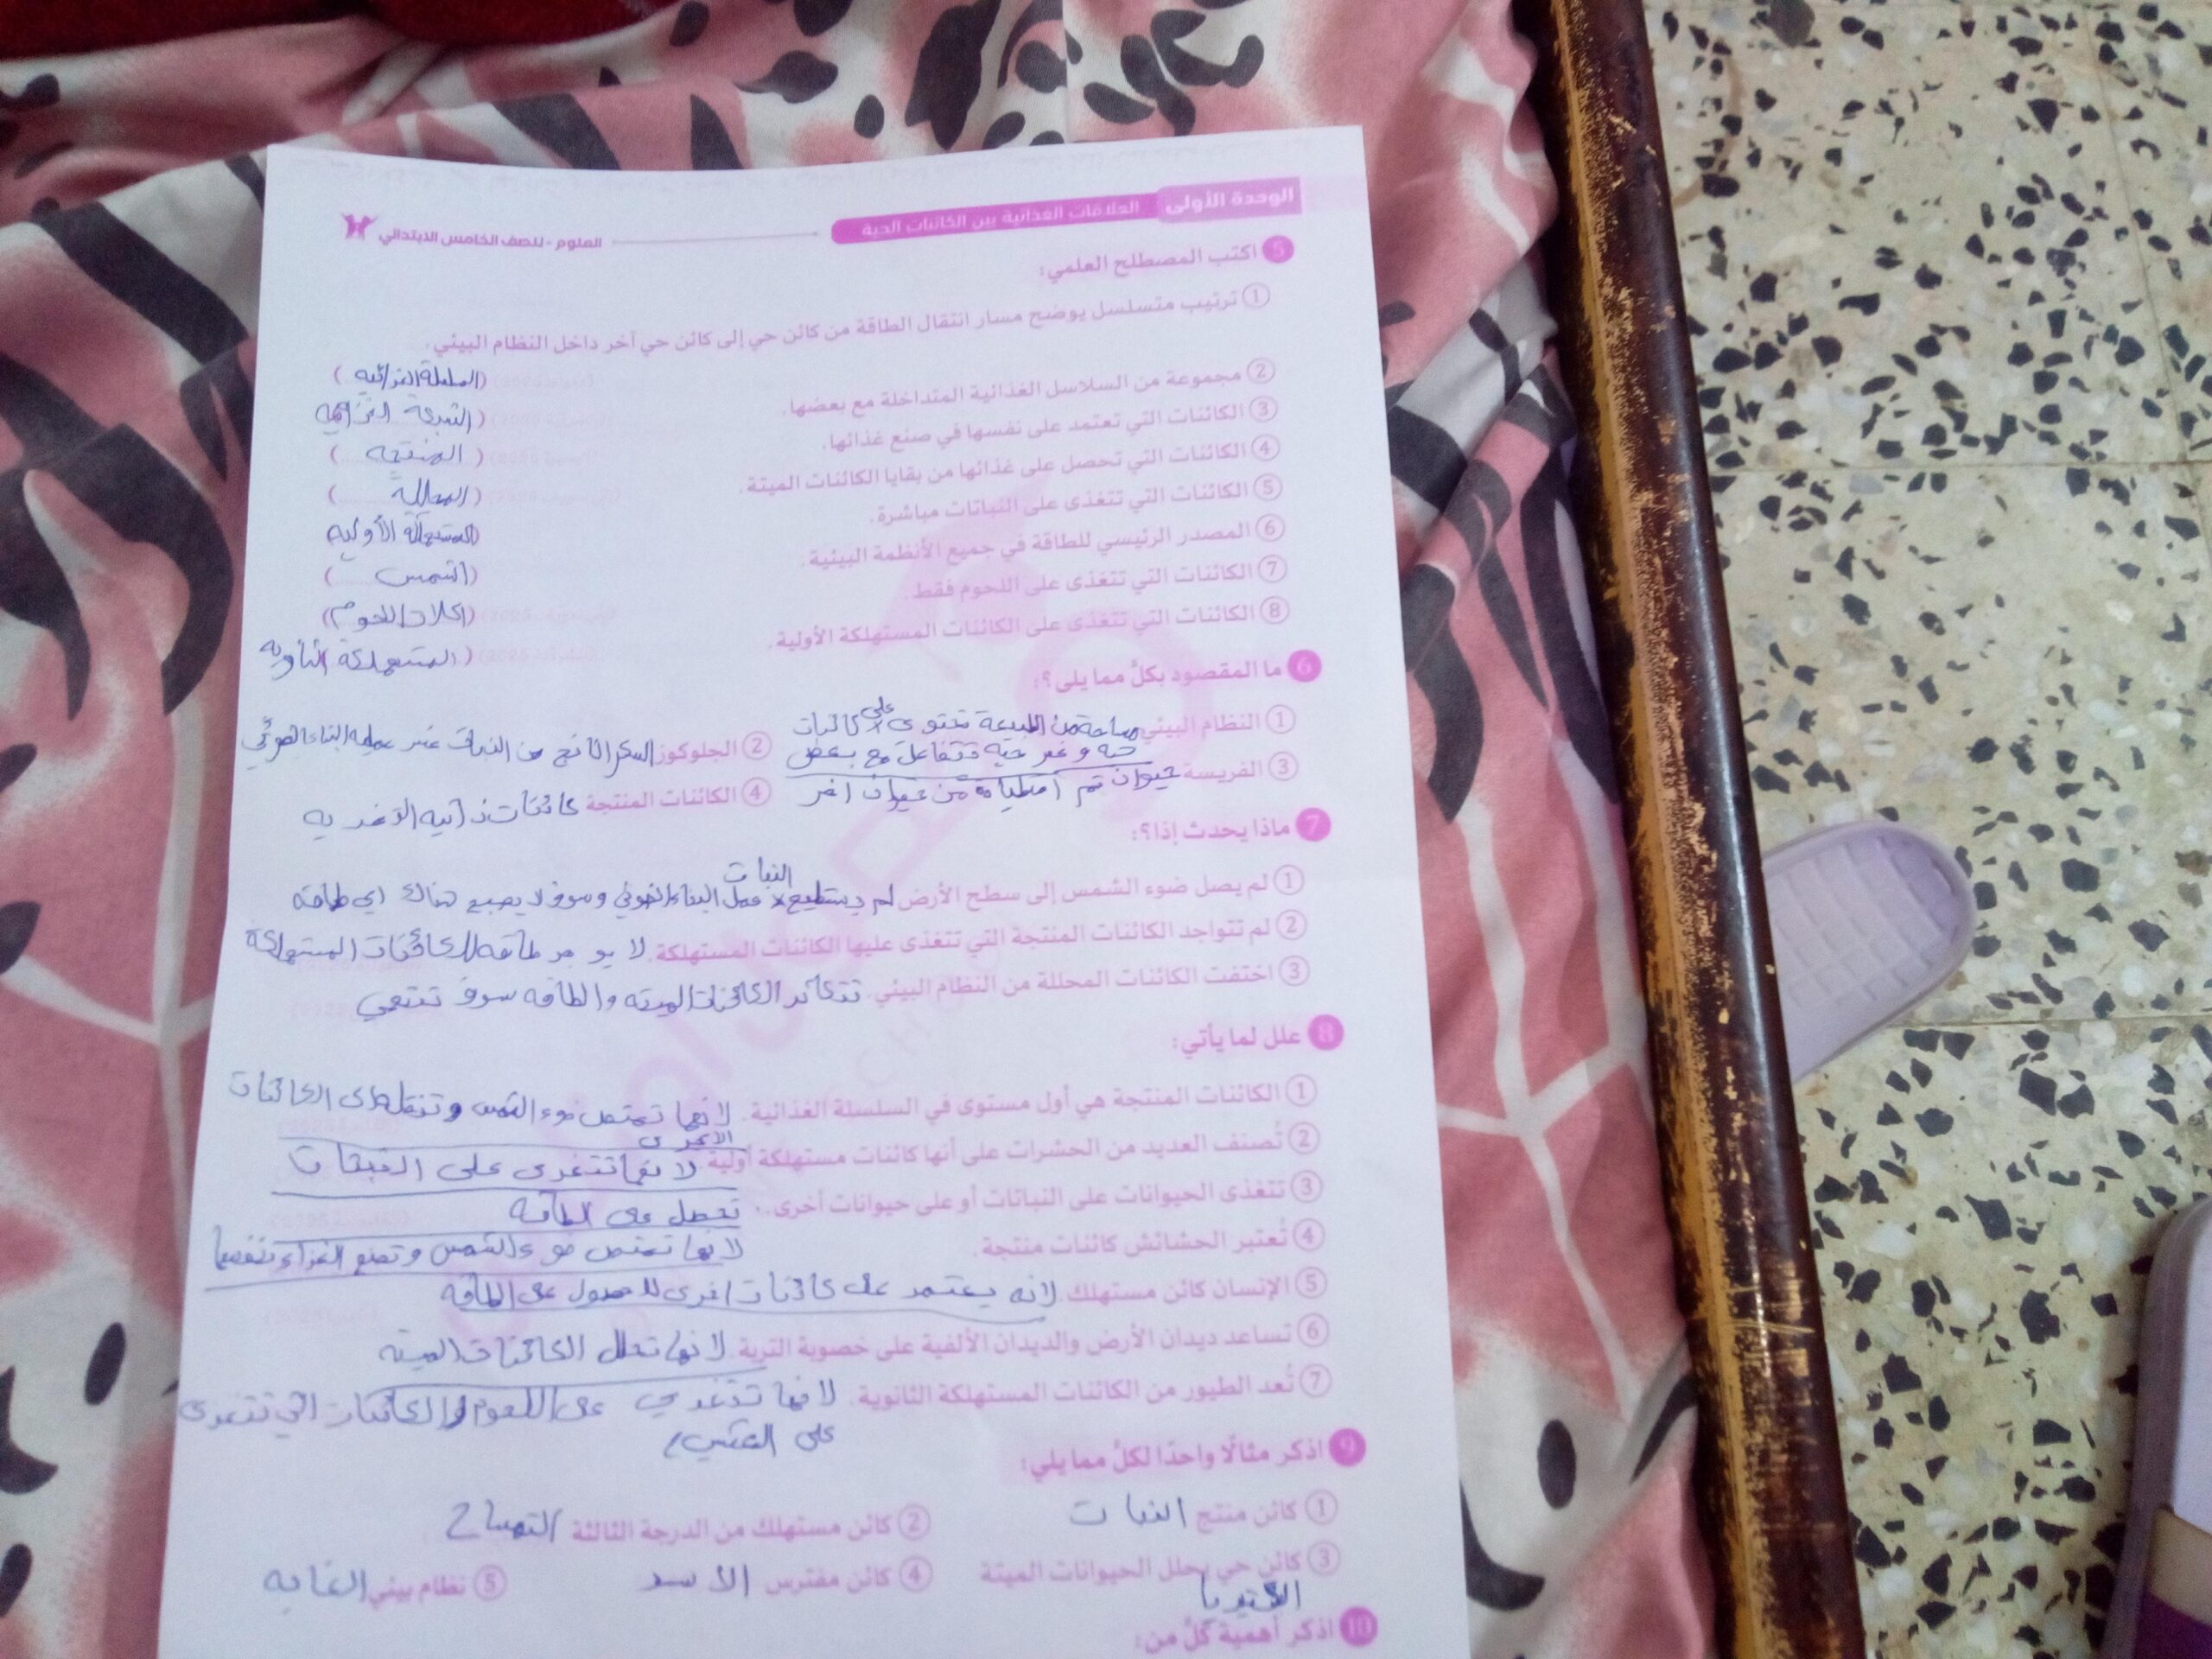 الوحدة الأولى العلاقات الغذائية بين الكائنات الحية
العلوم - للصف الخامس الابتدائي
5 اكتب المصطلح العلمي:
1 ترتيب متسلسل يوضح مسار انتقال الطاقة من كائن حي إلى كائن حي آخر داخل النظام البيئي.
(السلسلة الغذائيه)
2 مجموعة من السلاسل الغذائية المتداخلة مع بعضها.
(الشبكة الغذائيه
3 الكائنات التي تعتمد على نفسها في صنع غذائها.
(المنتجه)
4 الكائنات التي تحصل على غذائها من بقايا الكائنات الميتة.
(المحللة)
5 الكائنات التي تتغذى على النباتات مباشرة.
(المستهلكة الأوليه
6 المصدر الرئيسي للطاقة في جميع الأنظمة البيئية.
(الشمس)
7 الكائنات التي تتغذى على اللحوم فقط.
(اكلات اللحوم)
8 الكائنات التي تتغذى على الكائنات المستهلكة الأولية.
(المستهلكة الثانويه
6 ما المقصود بكلٍّ مما يلي؟:
1 النظام البيئي مساحة من الطبيعة تحتوى على كائنات
حيه و غير حيه تتفاعل مع بعض
2 الجلوكوز السكر الناتج من النبات عند عمليه البناء الضوئي
3 الفريسة حيوان تم اصطيادة من حيوان اخر
4 الكائنات المنتجة كائنات ذاتيه التغذيه
7 ماذا يحدث إذا؟:
1 لم يصل ضوء الشمس إلى سطح الأرض لم يستطيع النبات عمل البناء الضوئي وسوف لا يصبح هناك اي طاقه
2 لم تتواجد الكائنات المنتجة التي تتغذى عليها الكائنات المستهلكة. لا يوجد طاقه للكائنات المستهلكة
3 اختفت الكائنات المحللة من النظام البيئي. الكائنات الميته والطاقه سوف تنتهي
8 علل لما يأتي:
1 الكائنات المنتجة هي أول مستوى في السلسلة الغذائية. لانها تمتص ضوء الشمس و الكائنات
الاخرى
2 تُصنف العديد من الحشرات على أنها كائنات مستهلكة أولية لانها تتغذى على النباتات
3 تتغذى الحيوانات على النباتات أو على حيوانات أخرى. تحصل على الطاقه
4 تُعتبر الحشائش كائنات منتجة. لانها تمتص ضوء الشمس وتصنع الغذاء بنفسها
5 الإنسان كائن مستهلك لانه يعتمد على كائنات اخرى للحصول على الطاقه
6 تساعد ديدان الأرض والديدان الألفية على خصوبة التربة. لانها تحلل الكائنات الميته
7 تُعد الطيور من الكائنات المستهلكة الثانوية. لانها تتغذي على اللحوم والكائنات التي تتغذى
على
9 اذكر مثالًا واحدًا لكلٍّ مما يلي:
1 كائن منتج النبات
2 كائن مستهلك من الدرجة الثالثة التمساح
3 كائن حي يحلل الحيوانات الميتة
البكتيريا
4 كائن مفترس الاسد
5 نظام بيئي الغابه
10 اذكر أهمية كلٍّ من: